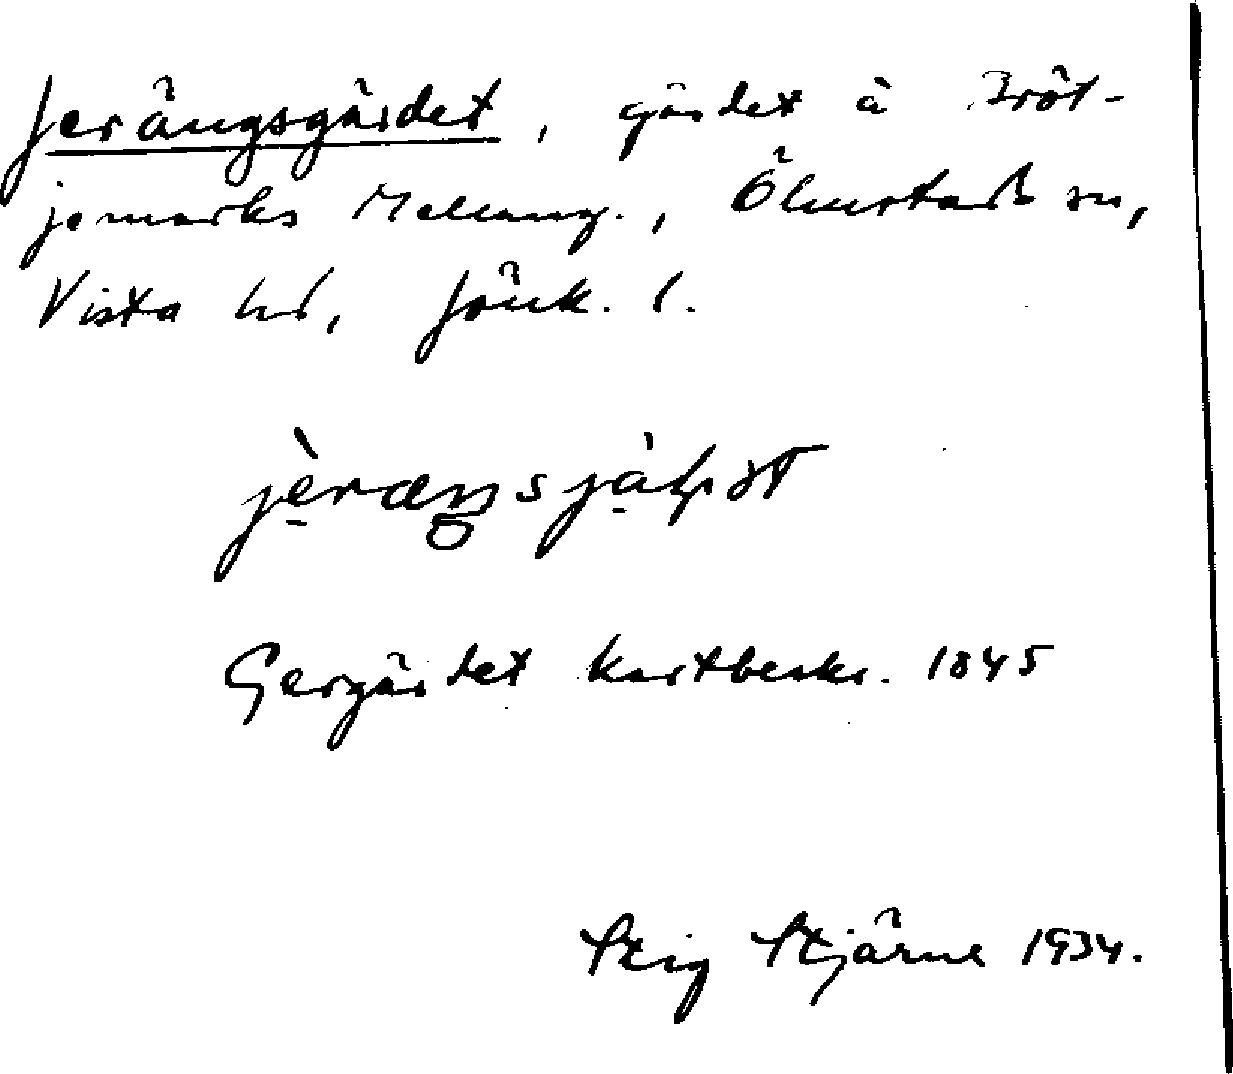 Jerängsgärdet, gärdet å Bröt-
jemarks Mellang., Ölmstads sn,
Vista hd, Jönk. l.
Gergärdet Kartbeskr. 1845
Stig Stjärne 1934.